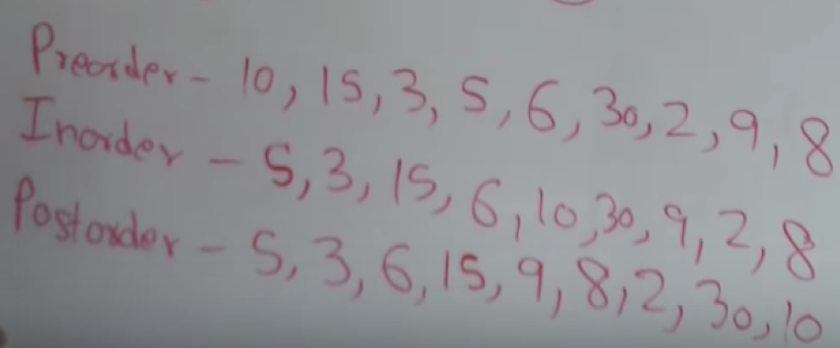 Preorder - 10, 15, 3, 5, 6, 30, 2, 9, 8
Inorder - 5, 3, 15, 6, 10, 30, 9, 2, 8
Postorder - 5, 3, 6, 15, 9, 8, 2, 30, 10